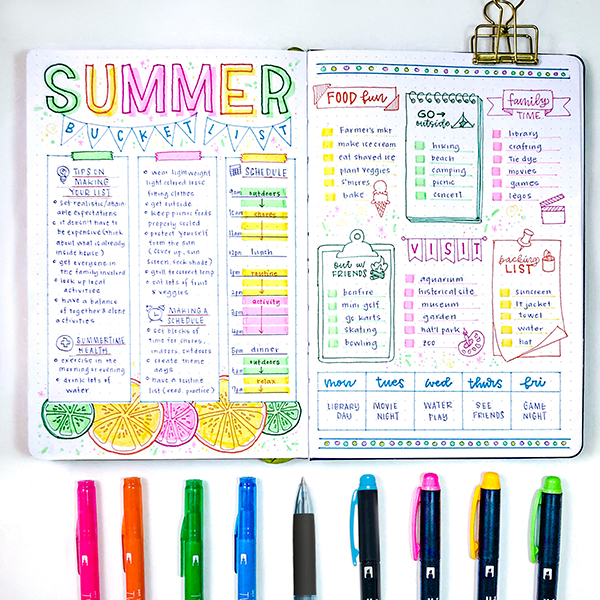 SUMMER
BUCKET LIST
TIPS ON
MAKING
YOUR LIST
• set realistic/attain-
able expectations
• it doesn't have to
be expensive (think
about what is already
inside house)
• get everyone in
the family involved
• look up local
activities
• have a balance
of together & alone
activities
SUMMERTIME
HEALTH
• exercise in the
morning or evening
• drink lots of
water
• wear lightweight
light colored loose
fitting clothes
• get outside
• keep picnic foods
properly sealed
• protect yourself
from the sun
(cover up, sun
screen, seek shade)
• grill to correct temp
• eat lots of fruit
& veggies
MAKING A
SCHEDULE
• set blocks of
time for chores,
indoors, outdoors
• create theme
days
• have a routine
list (read, practice)
SCHEDULE
9am outdoors
10am chores
11am
12pm lunch
1pm routine
2pm
activity
4pm
5pm dinner
outdoors
relax
7pm
FOOD fun
Farmer's mkt
make ice cream
eat shaved ice
plant veggies
s'mores
bake
GO→
outside
hiking
beach
camping
picnic
concert
family
TIME
library
crafting
tie dye
movies
games
legos
out w/
FRIENDS
bonfire
mini golf
go karts
skating
bowling
VISIT
aquarium
historical site
museum
garden
nat'l park
zoo
packing
LIST
sunscreen
lt jacket
towel
water
hat
mon tues wed thurs fri
LIBRARY DAY
MOVIE NIGHT
WATER PLAY
SEE FRIENDS
GAME NIGHT